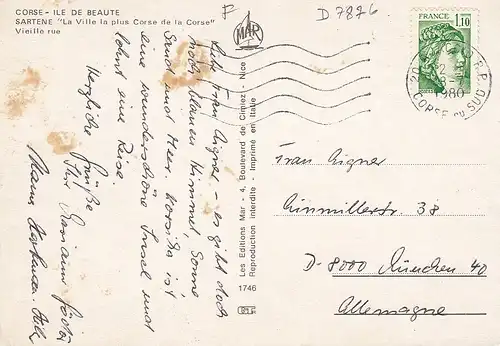 CORSE - ILE DE BEAUTE
SARTENE "La Ville la plus Corse de la Corse"
Vieille rue
F
D 7876
MAR
FRANCE
1,10
1980
CORSE DU SUD
Liebe Frau Aigner - es gibt doch
noch blauen Himmel, Sonne
Sand und Meer. Korsika ist
eine wunderschöne Insel und
lohnt eine Reise.
Herzliche Grüße
Ihr
Les Editions Mar - 4, Boulevard de Cimiez - Nice
Reproduction interdite - Imprimé en Italie
1746
Frau Aigner
Ainmillerstr. 38
D-8000 München 40
Allemagne